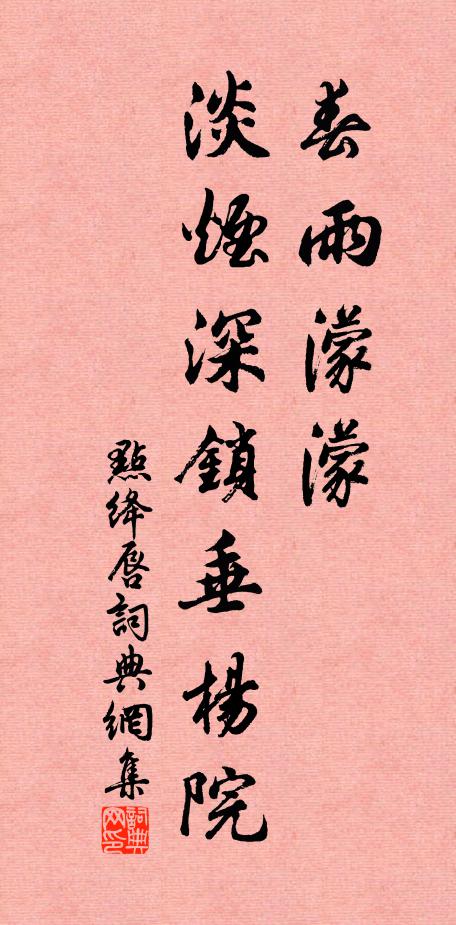 春雨濛濛
淡煙深鎖垂楊院
點絳唇詞典網集
詞典
网印